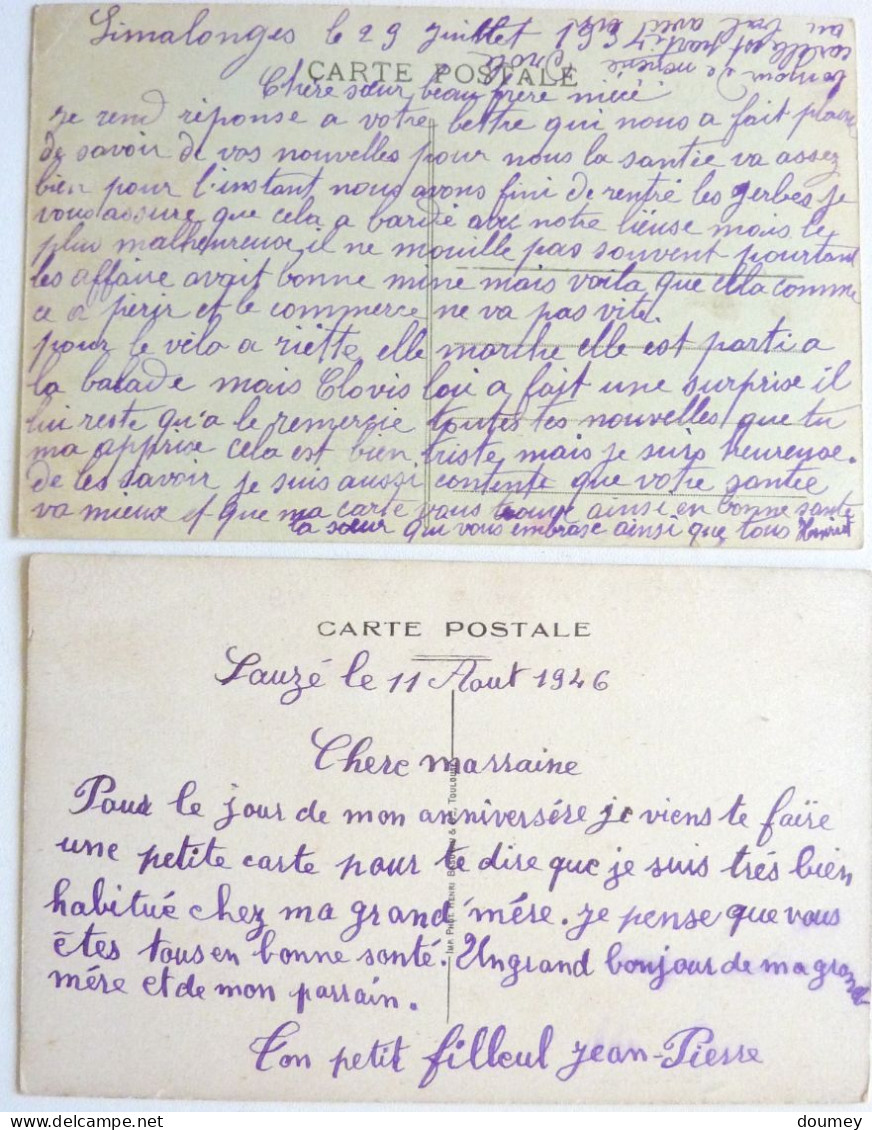 Limalonges le 29 Juillet 193
CARTE POSTALE
Chère sœur beau frère nièce
Je rend réponse a votre lettre qui nous a fait plaisir
de savoir de vos nouvelles pour nous la santée va assez
bien pour l'instant nous avons fini de rentré les gerbes je
vous assure que cela a bardé avec notre lieuse mais le
plus malheureuse il ne mouille pas souvent pourtant
les affaire avait bonne mine mais voila que ella comme
ce a périr et le commerce ne va pas vite.
pour le vélo a riette elle marche elle est parti a
la balade mais Clovis loui a fait une surprise il
lui reste qu'a le remercie toutes tes nouvelles que tu
ma apprise cela est bien triste, mais je suis heureuse.
de les savoir je suis aussi contente que votre santée
va mieux et que ma carte vous trouve ainsi en bonne santé
ta sœur qui vous embrase ainsi que tous
CARTE POSTALE
Sauzé le 11 Aout 1946
Chere marraine
Pour le jour de mon anniversére je viens te faïre
une petite carte pour te dire que je suis trés bien
habitué chez ma grand'mére. je pense que vous
êtes tous en bonne santé. Un grand bonjour de ma grand
mére et de mon parrain.
Ton petit filleul Jean-Pierre
IMP. PHOT. HENRI & TOULOUSE
doumey